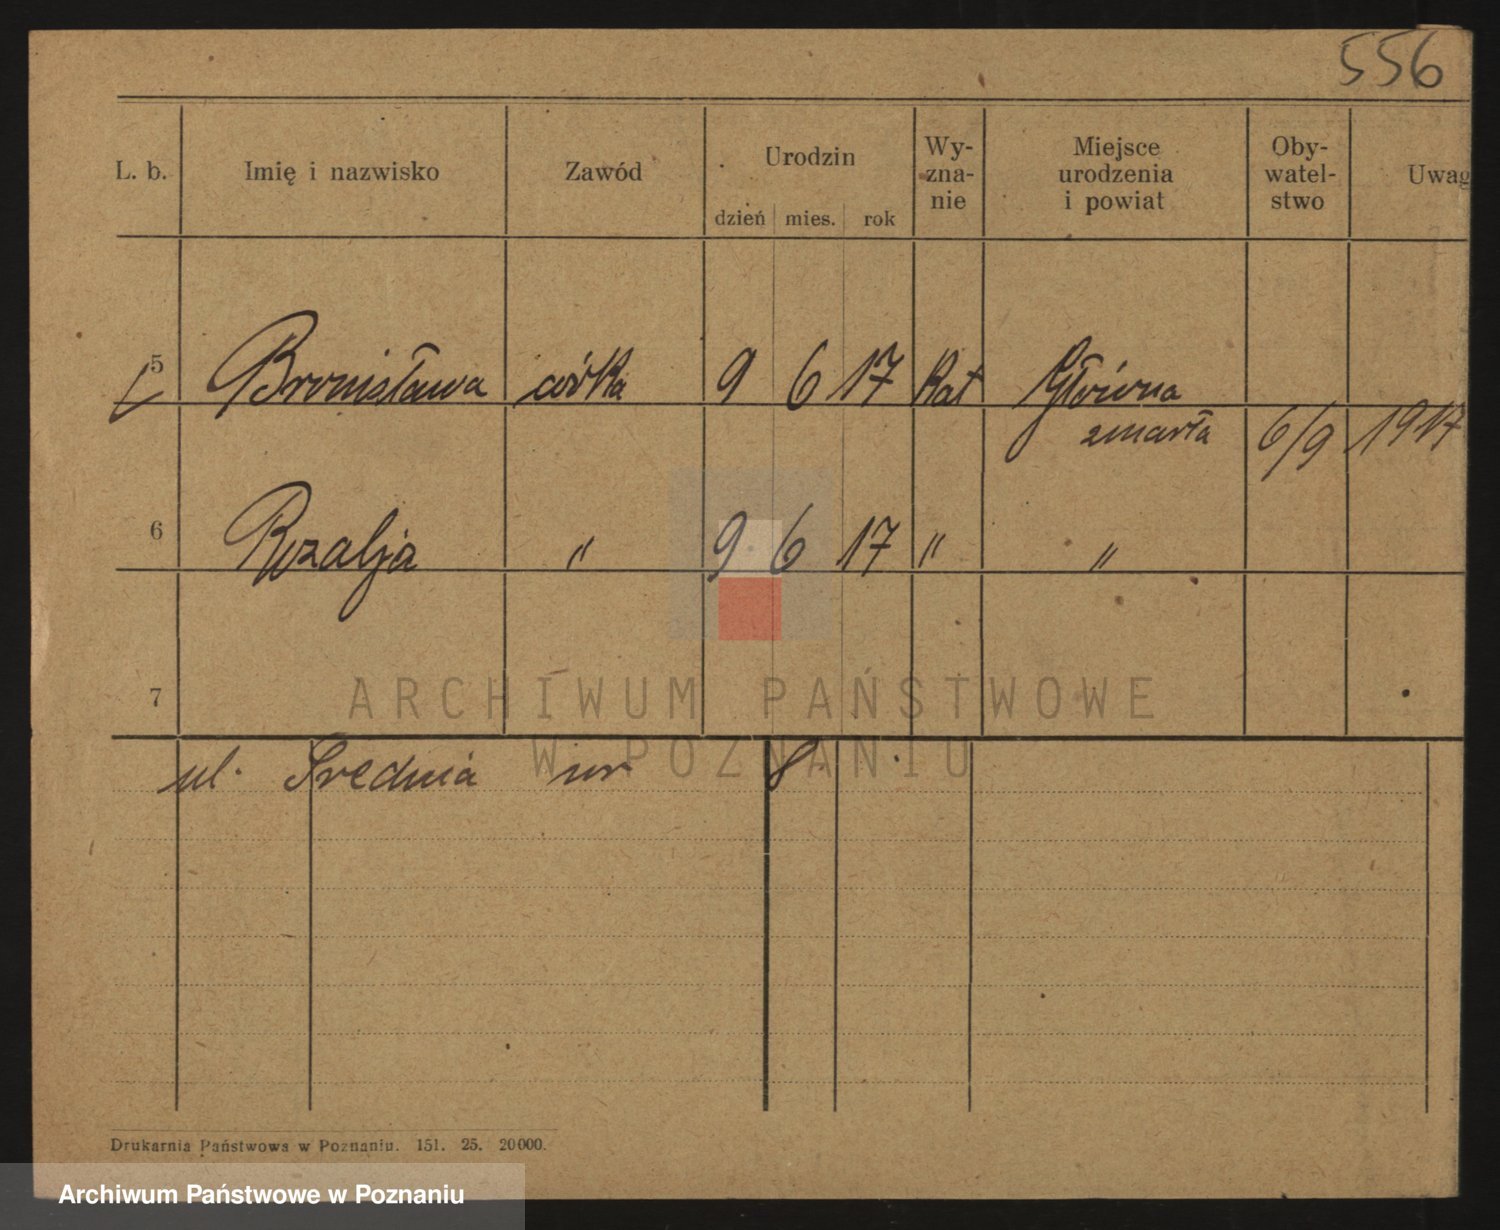 556
L. b. Imię i nazwisko Zawód Urodzin Wy- Miejsce Oby- Uwag
zna- urodzenia watel-
nie i powiat stwo
dzień mies. rok
5 Bronisława córka 9 6 17 Kat Główna
zmarła 6/9 1917
6 Rozalja " 9 6 17 " "
7
ARCHIWUM PAŃSTWOWE
W POZNANIU
ul. Średnia nr 8.
Drukarnia Państwowa w Poznaniu. 151. 25. 20000.
Archiwum Państwowe w Poznaniu